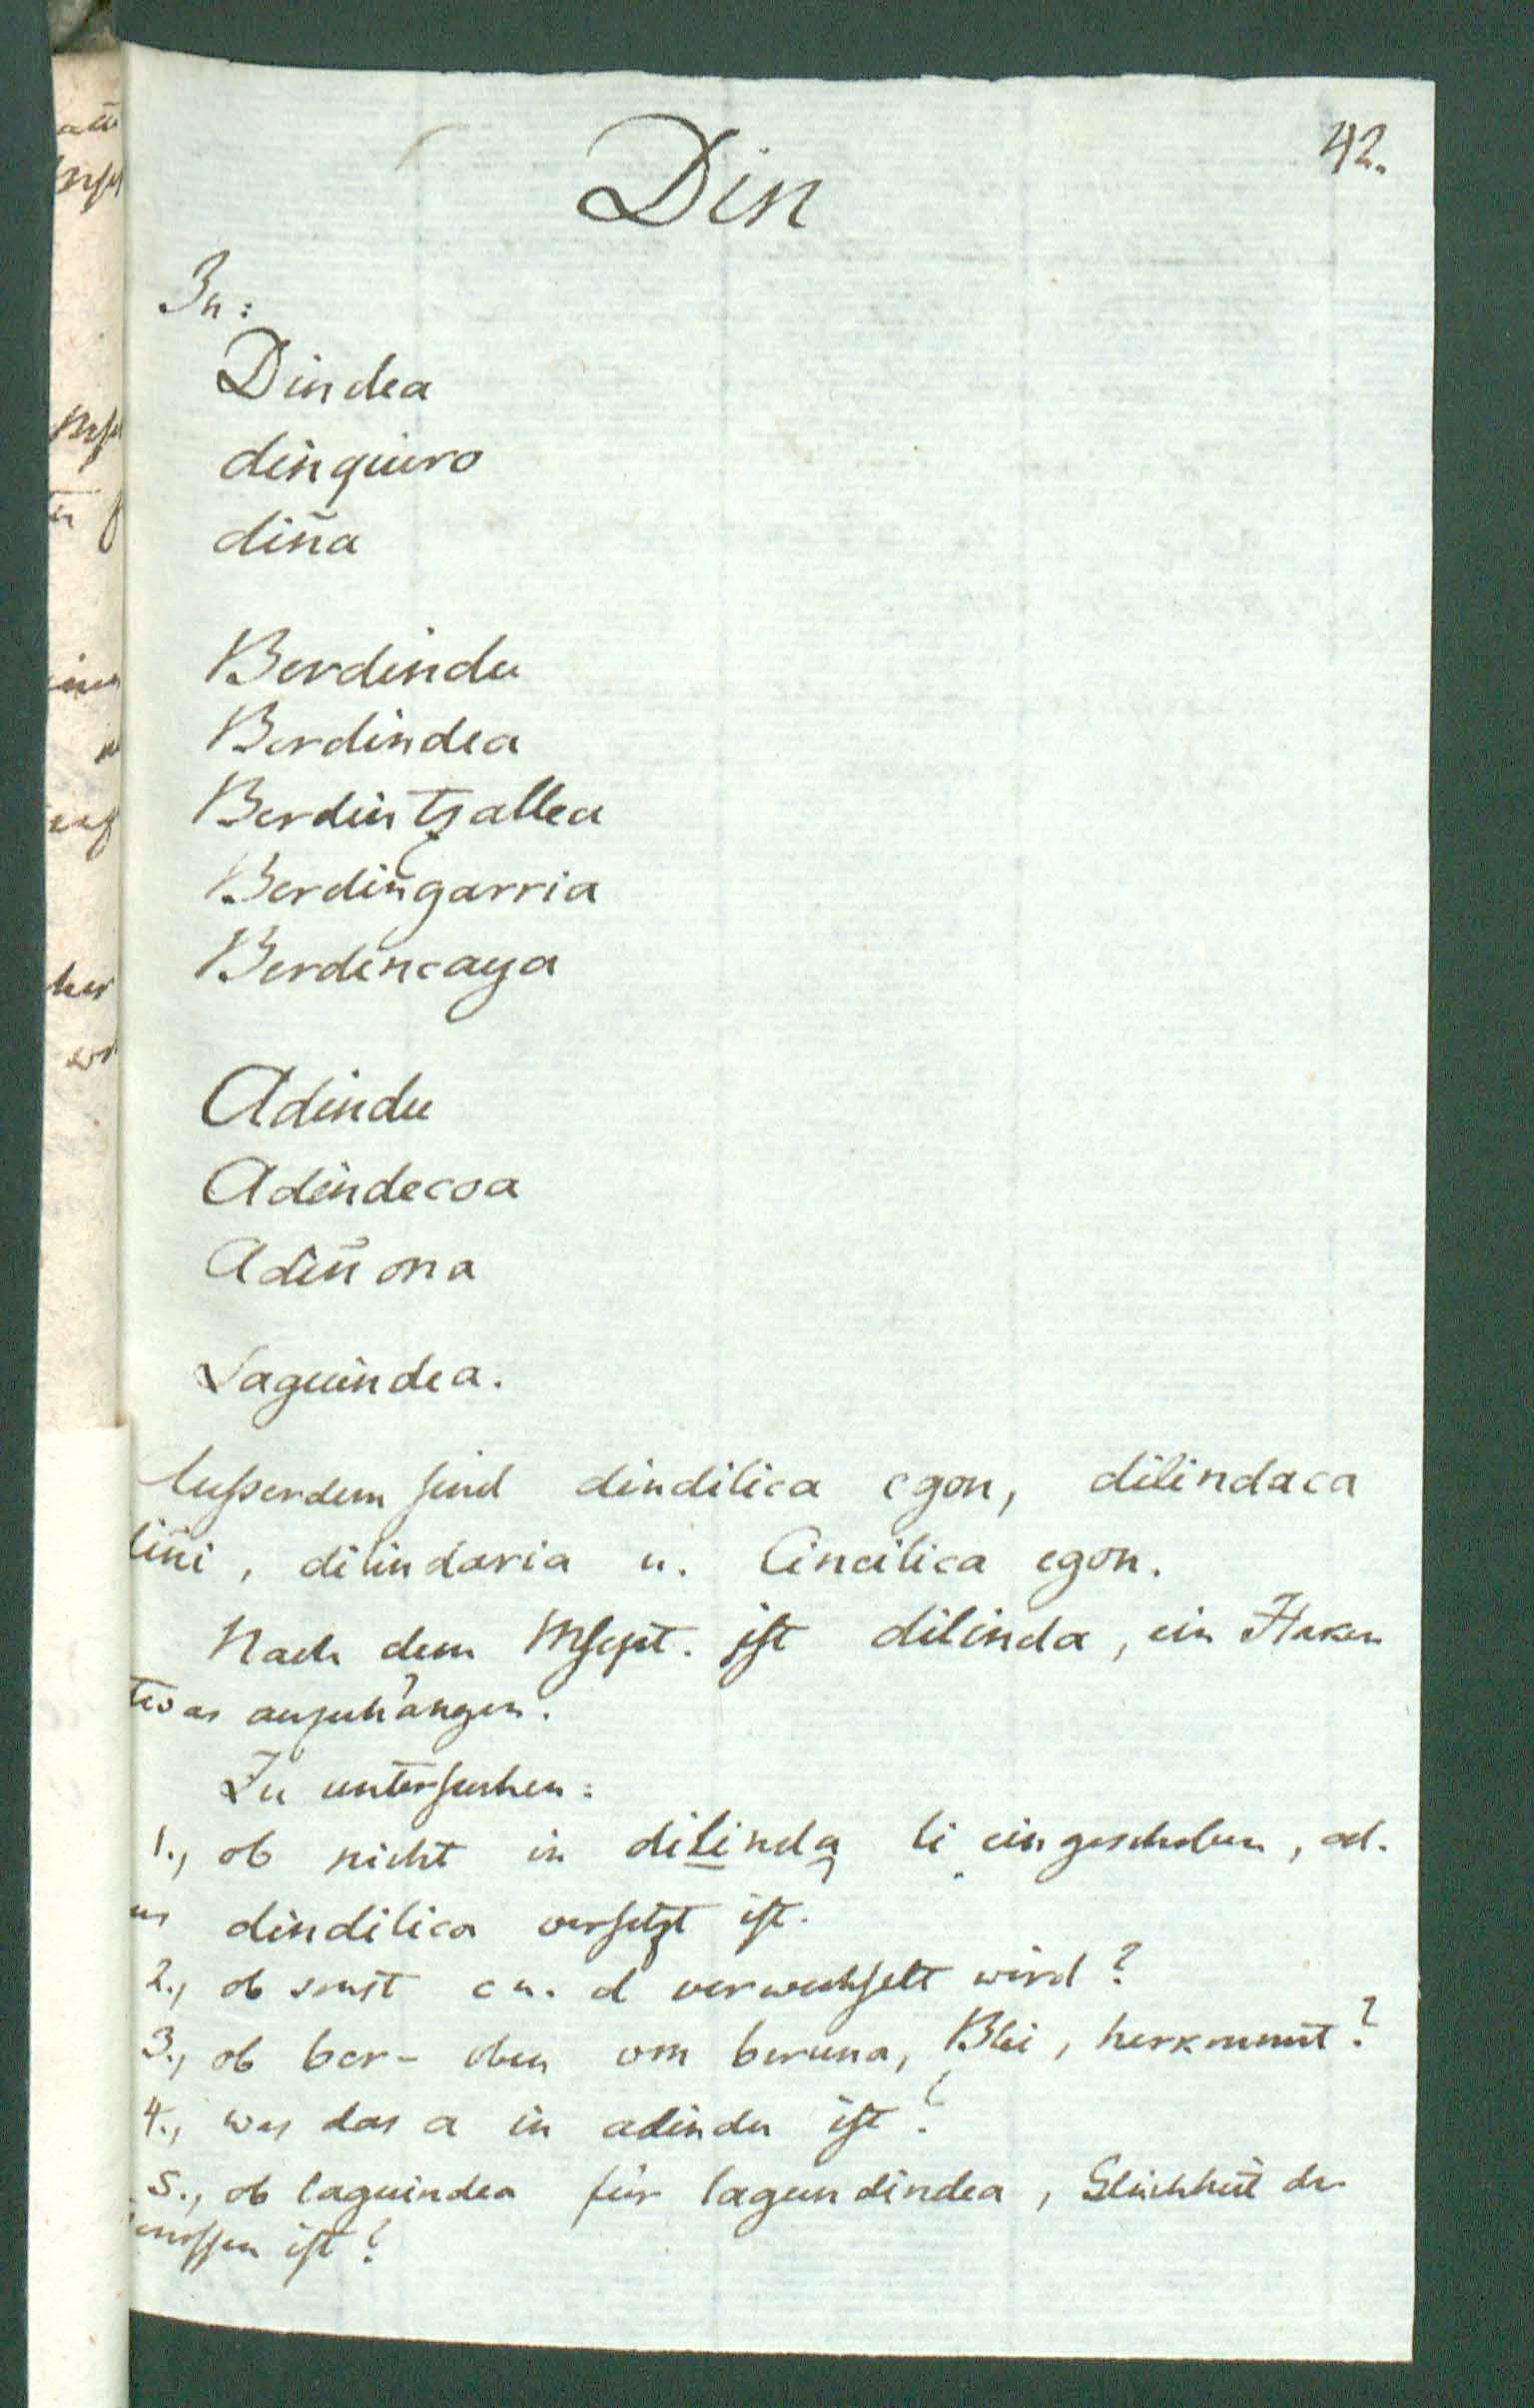 42.
Din
In:
Dindea
dinquiro
diña
Berdindu
Berdindea
Berdintzallea
Berdiñgarria
Berdincaya
Adindu
Adindecoa
Adiñona
Laguindea.
Außerdem sind dindilica egon, dilindaca
iñi, dilindaria u. Cincilica egon.
Nach dem Mscpt. ist dilinda, ein Haken
twas anzuhängen.
Zu untersuchen:
1., ob nicht in dilinda li eingeschoben, od.
us dindilica versetzt ist.
2., ob sonst c u. d verwechselt wird?
3., ob ber- oben von beruna, Blei, herkommt?
4., was das a in adindu ist?
5., ob laguindea für lagundindea, Gleichheit der
enossen ist?